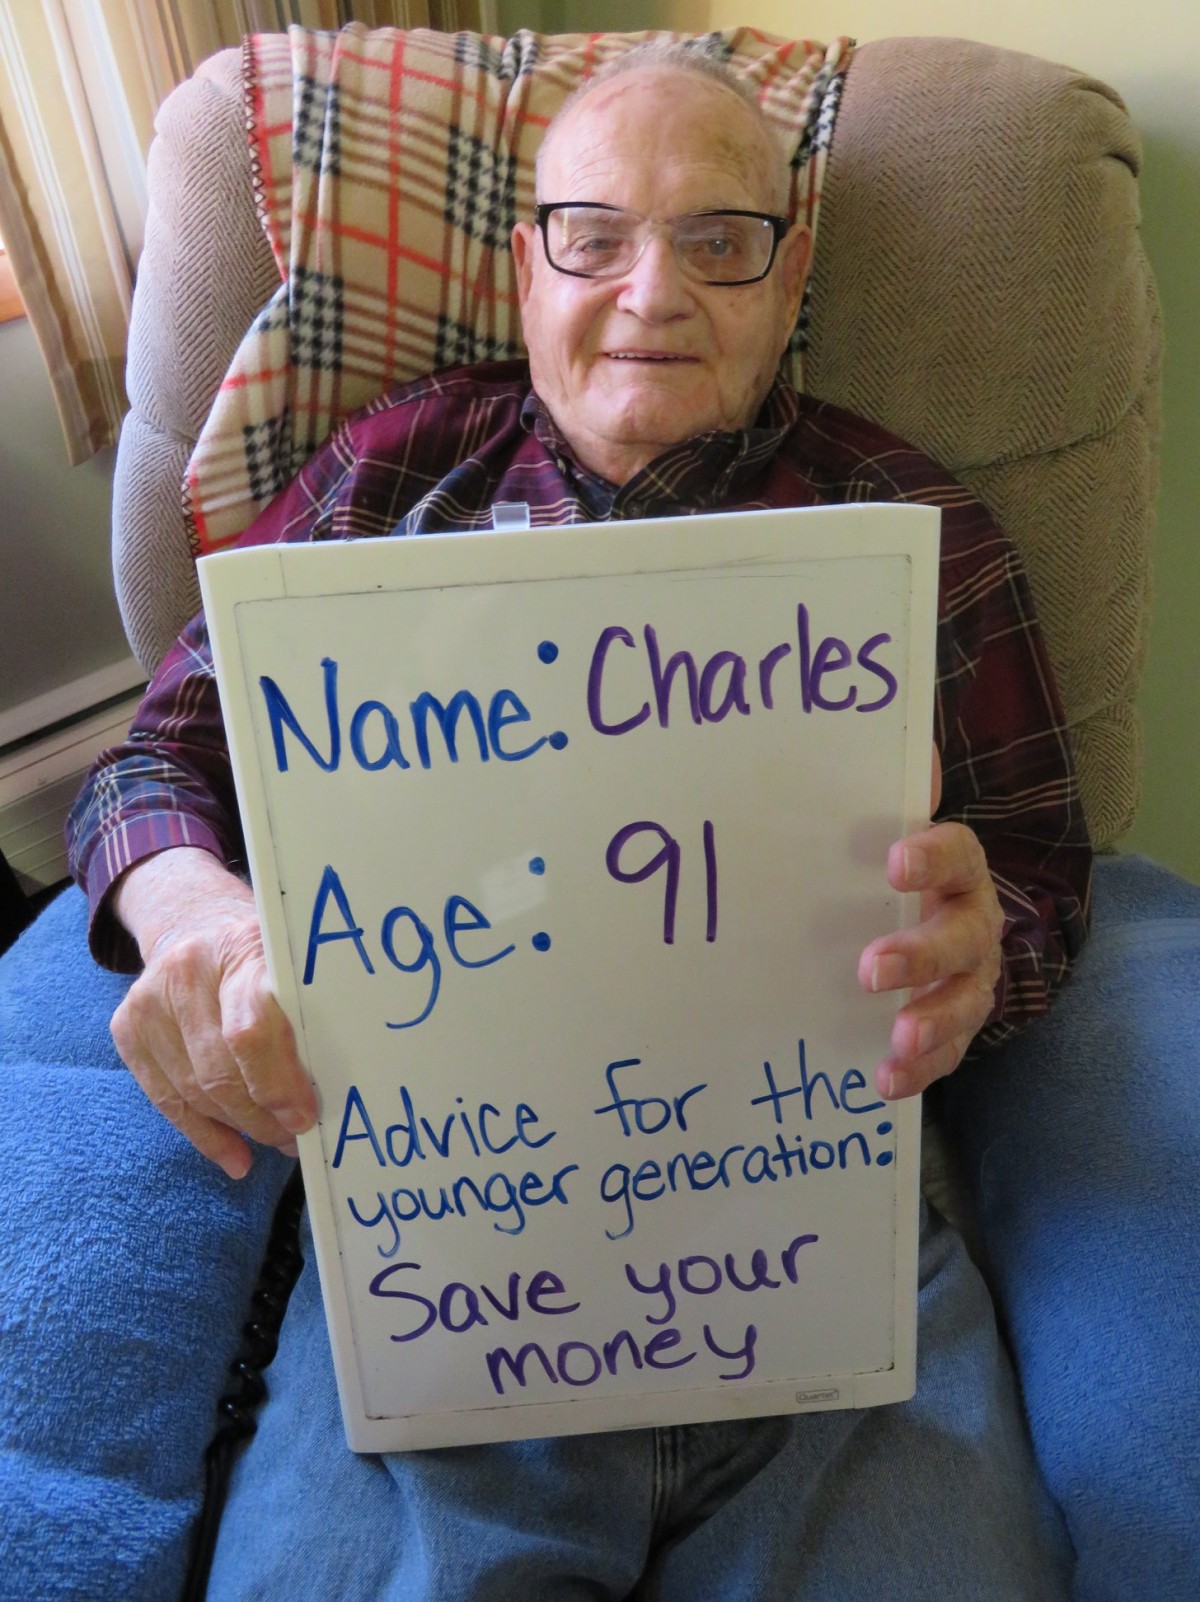 Name: Charles
Age: 91
Advice for the
younger generation:
Save your
money
Quartet